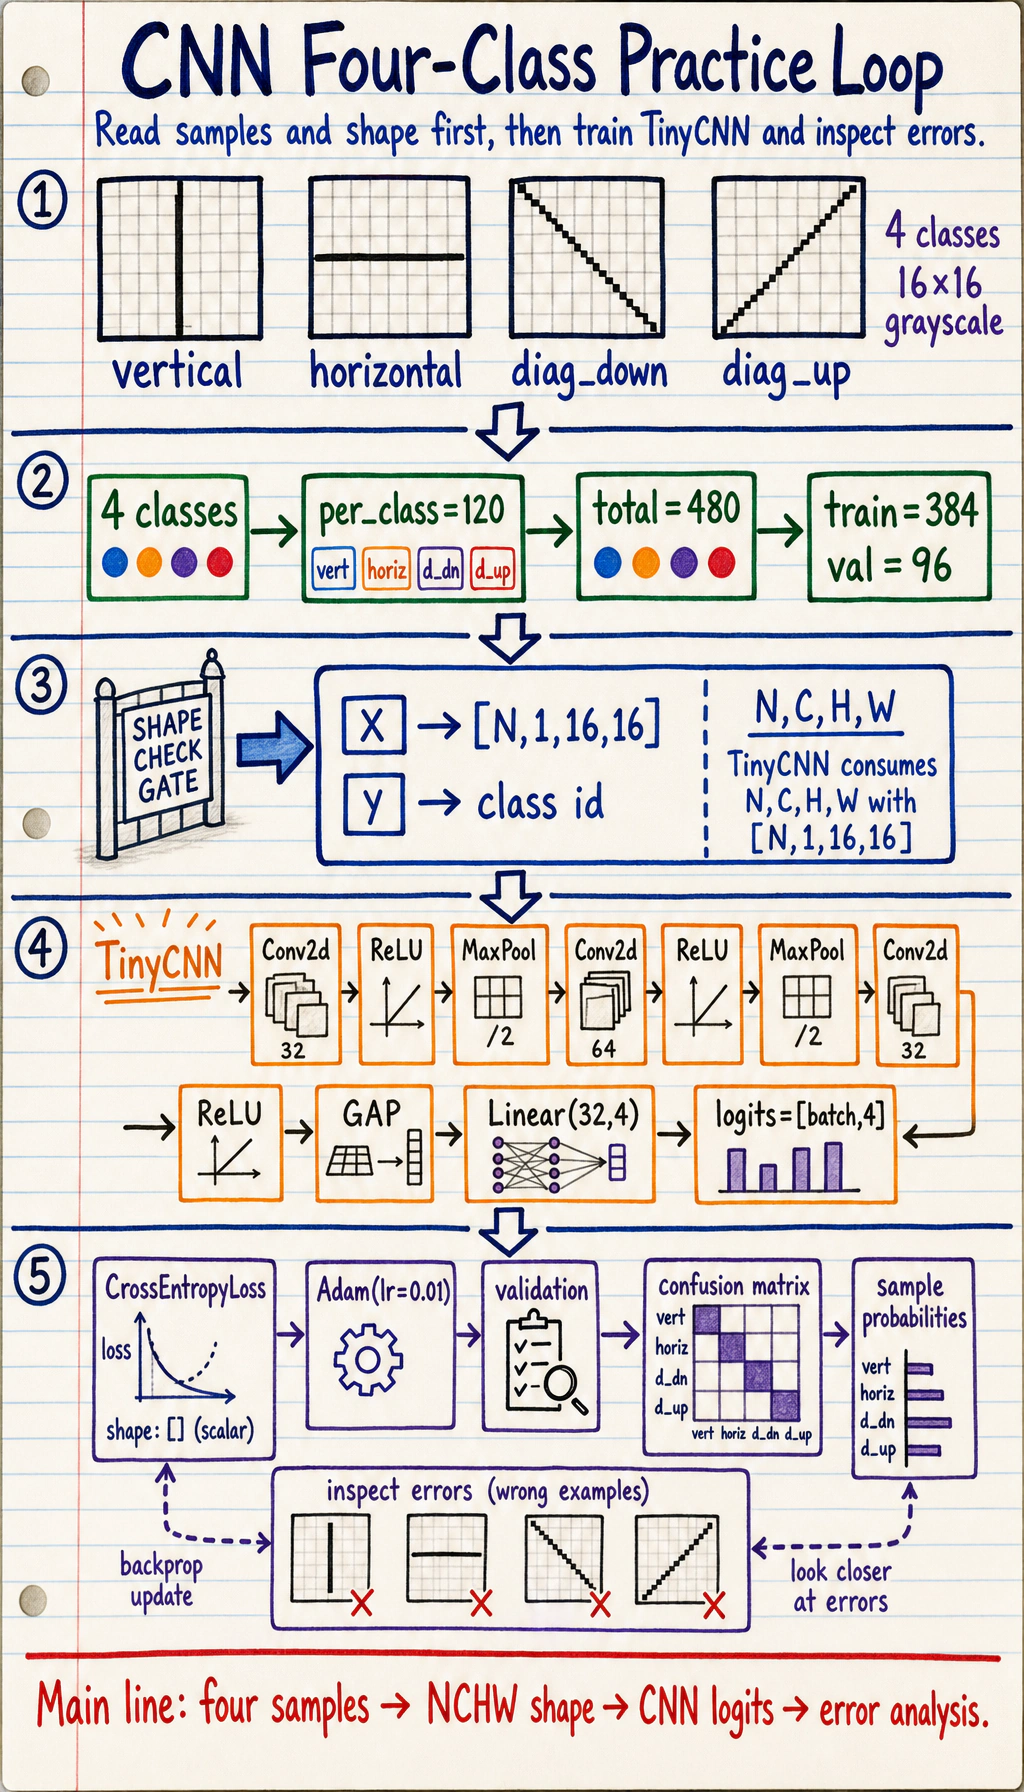 CNN Four-Class Practice Loop
Read samples and shape first, then train TinyCNN and inspect errors.
1
vertical
horizontal
diag_down
diag_up
4 classes
16×16
grayscale
2
4 classes
per_class=120
vert
horiz
d_dn
d_up
total=480
train=384
val = 96
3
SHAPE
CHECK
GATE
X → [N,1,16,16]
y → class id
N,C,H,W
TinyCNN consumes
N,C,H,W with
[N,1,16,16]
4
TinyCNN
Conv2d
32
ReLU
MaxPool
/2
Conv2d
64
ReLU
MaxPool
/2
Conv2d
32
ReLU
GAP
Linear(32,4)
logits=[batch,4]
5
CrossEntropyLoss
loss
shape: [] (scalar)
Adam(lr=0.01)
validation
confusion matrix
vert
horiz
d_dn
d_up
vert horiz d_dn d_up
sample
probabilities
vert
horiz
d_dn
d_up
inspect errors (wrong examples)
backprop
update
look closer
at errors
Main line: four samples → NCHW shape → CNN logits → error analysis.